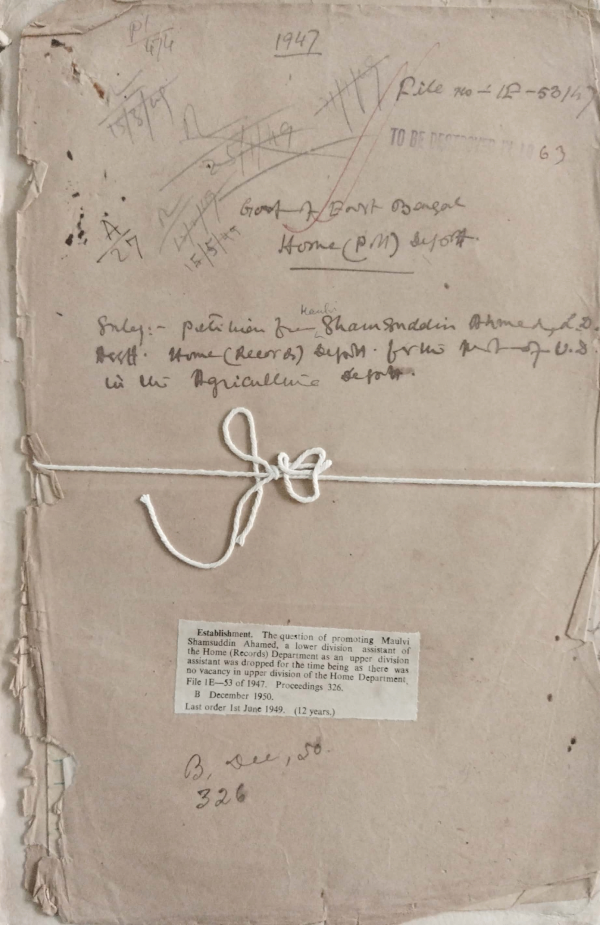 1947
P1/474
15/3/49
25/1/49
File no - 1E-53/47
TO BE DESTROYED IN 1963
A/27
15/5/49
Govt of East Bengal
Home (Poll) Deptt.
Subj:- petition from Maulvi Shamsuddin Ahmed, L.D.
Asstt. Home (Records) Deptt. for the post of U.D.
in the Agriculture Deptt.
Establishment. The question of promoting Maulvi
Shamsuddin Ahamed, a lower division assistant of
the Home (Records) Department as an upper division
assistant was dropped for the time being as there was
no vacancy in upper division of the Home Department.
File 1E—53 of 1947. Proceedings 326.
B December 1950.
Last order 1st June 1949. (12 years.)
B, Dec, 50.
326